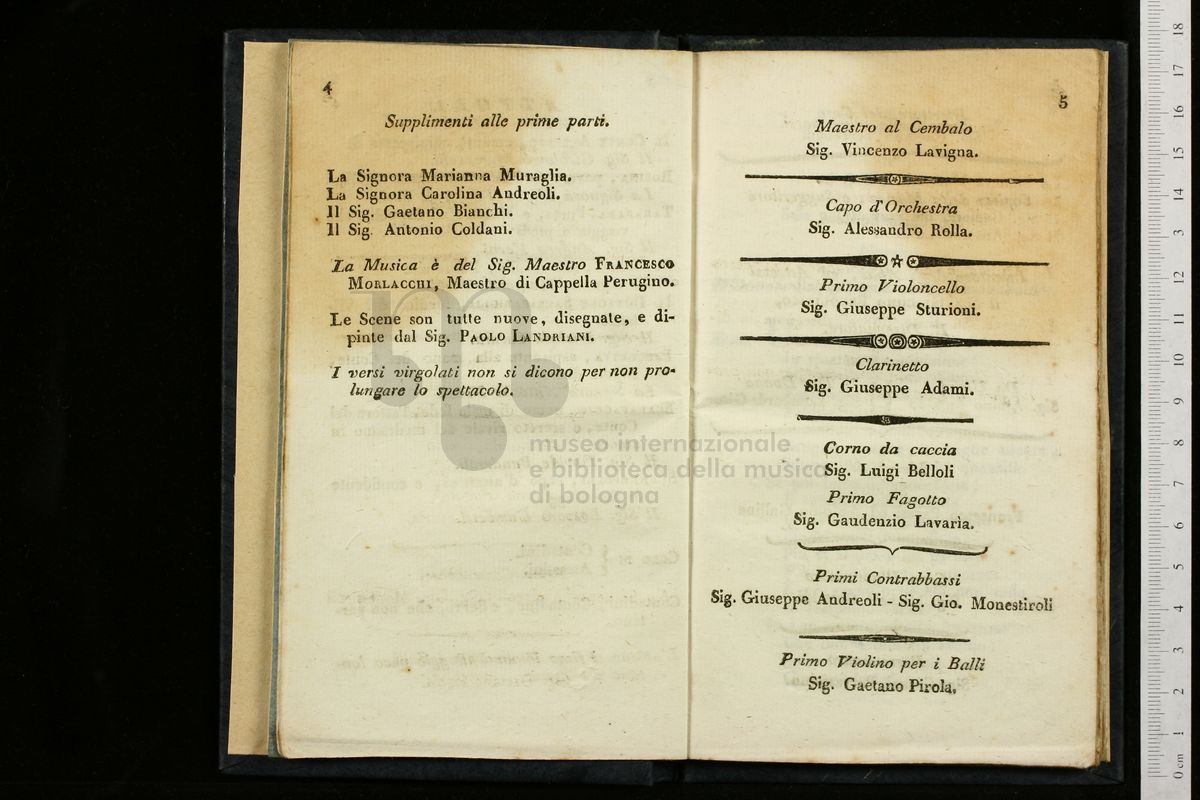 4
Supplimenti alle prime parti.
La Signora Marianna Muraglia.
La Signora Carolina Andreoli.
Il Sig. Gaetano Bianchi.
Il Sig. Antonio Coldani.
La Musica è del Sig. Maestro FRANCESCO
MORLACCHI, Maestro di Cappella Perugino.
Le Scene son tutte nuove, disegnate, e di-
pinte dal Sig. PAOLO LANDRIANI.
I versi virgolati non si dicono per non pro-
lungare lo spettacolo.
museo internazionale
e biblioteca della musica
di bologna
5
Maestro al Cembalo
Sig. Vincenzo Lavigna.
Capo d'Orchestra
Sig. Alessandro Rolla.
Primo Violoncello
Sig. Giuseppe Sturioni.
Clarinetto
Sig. Giuseppe Adami.
Corno da caccia
Sig. Luigi Belloli
Primo Fagotto
Sig. Gaudenzio Lavarìa.
Primi Contrabbassi
Sig. Giuseppe Andreoli - Sig. Gio. Monestiroli
Primo Violino per i Balli
Sig. Gaetano Pirola.
0 cm 1 2 3 4 5 6 7 8 9 10 11 12 13 14 15 16 17 18